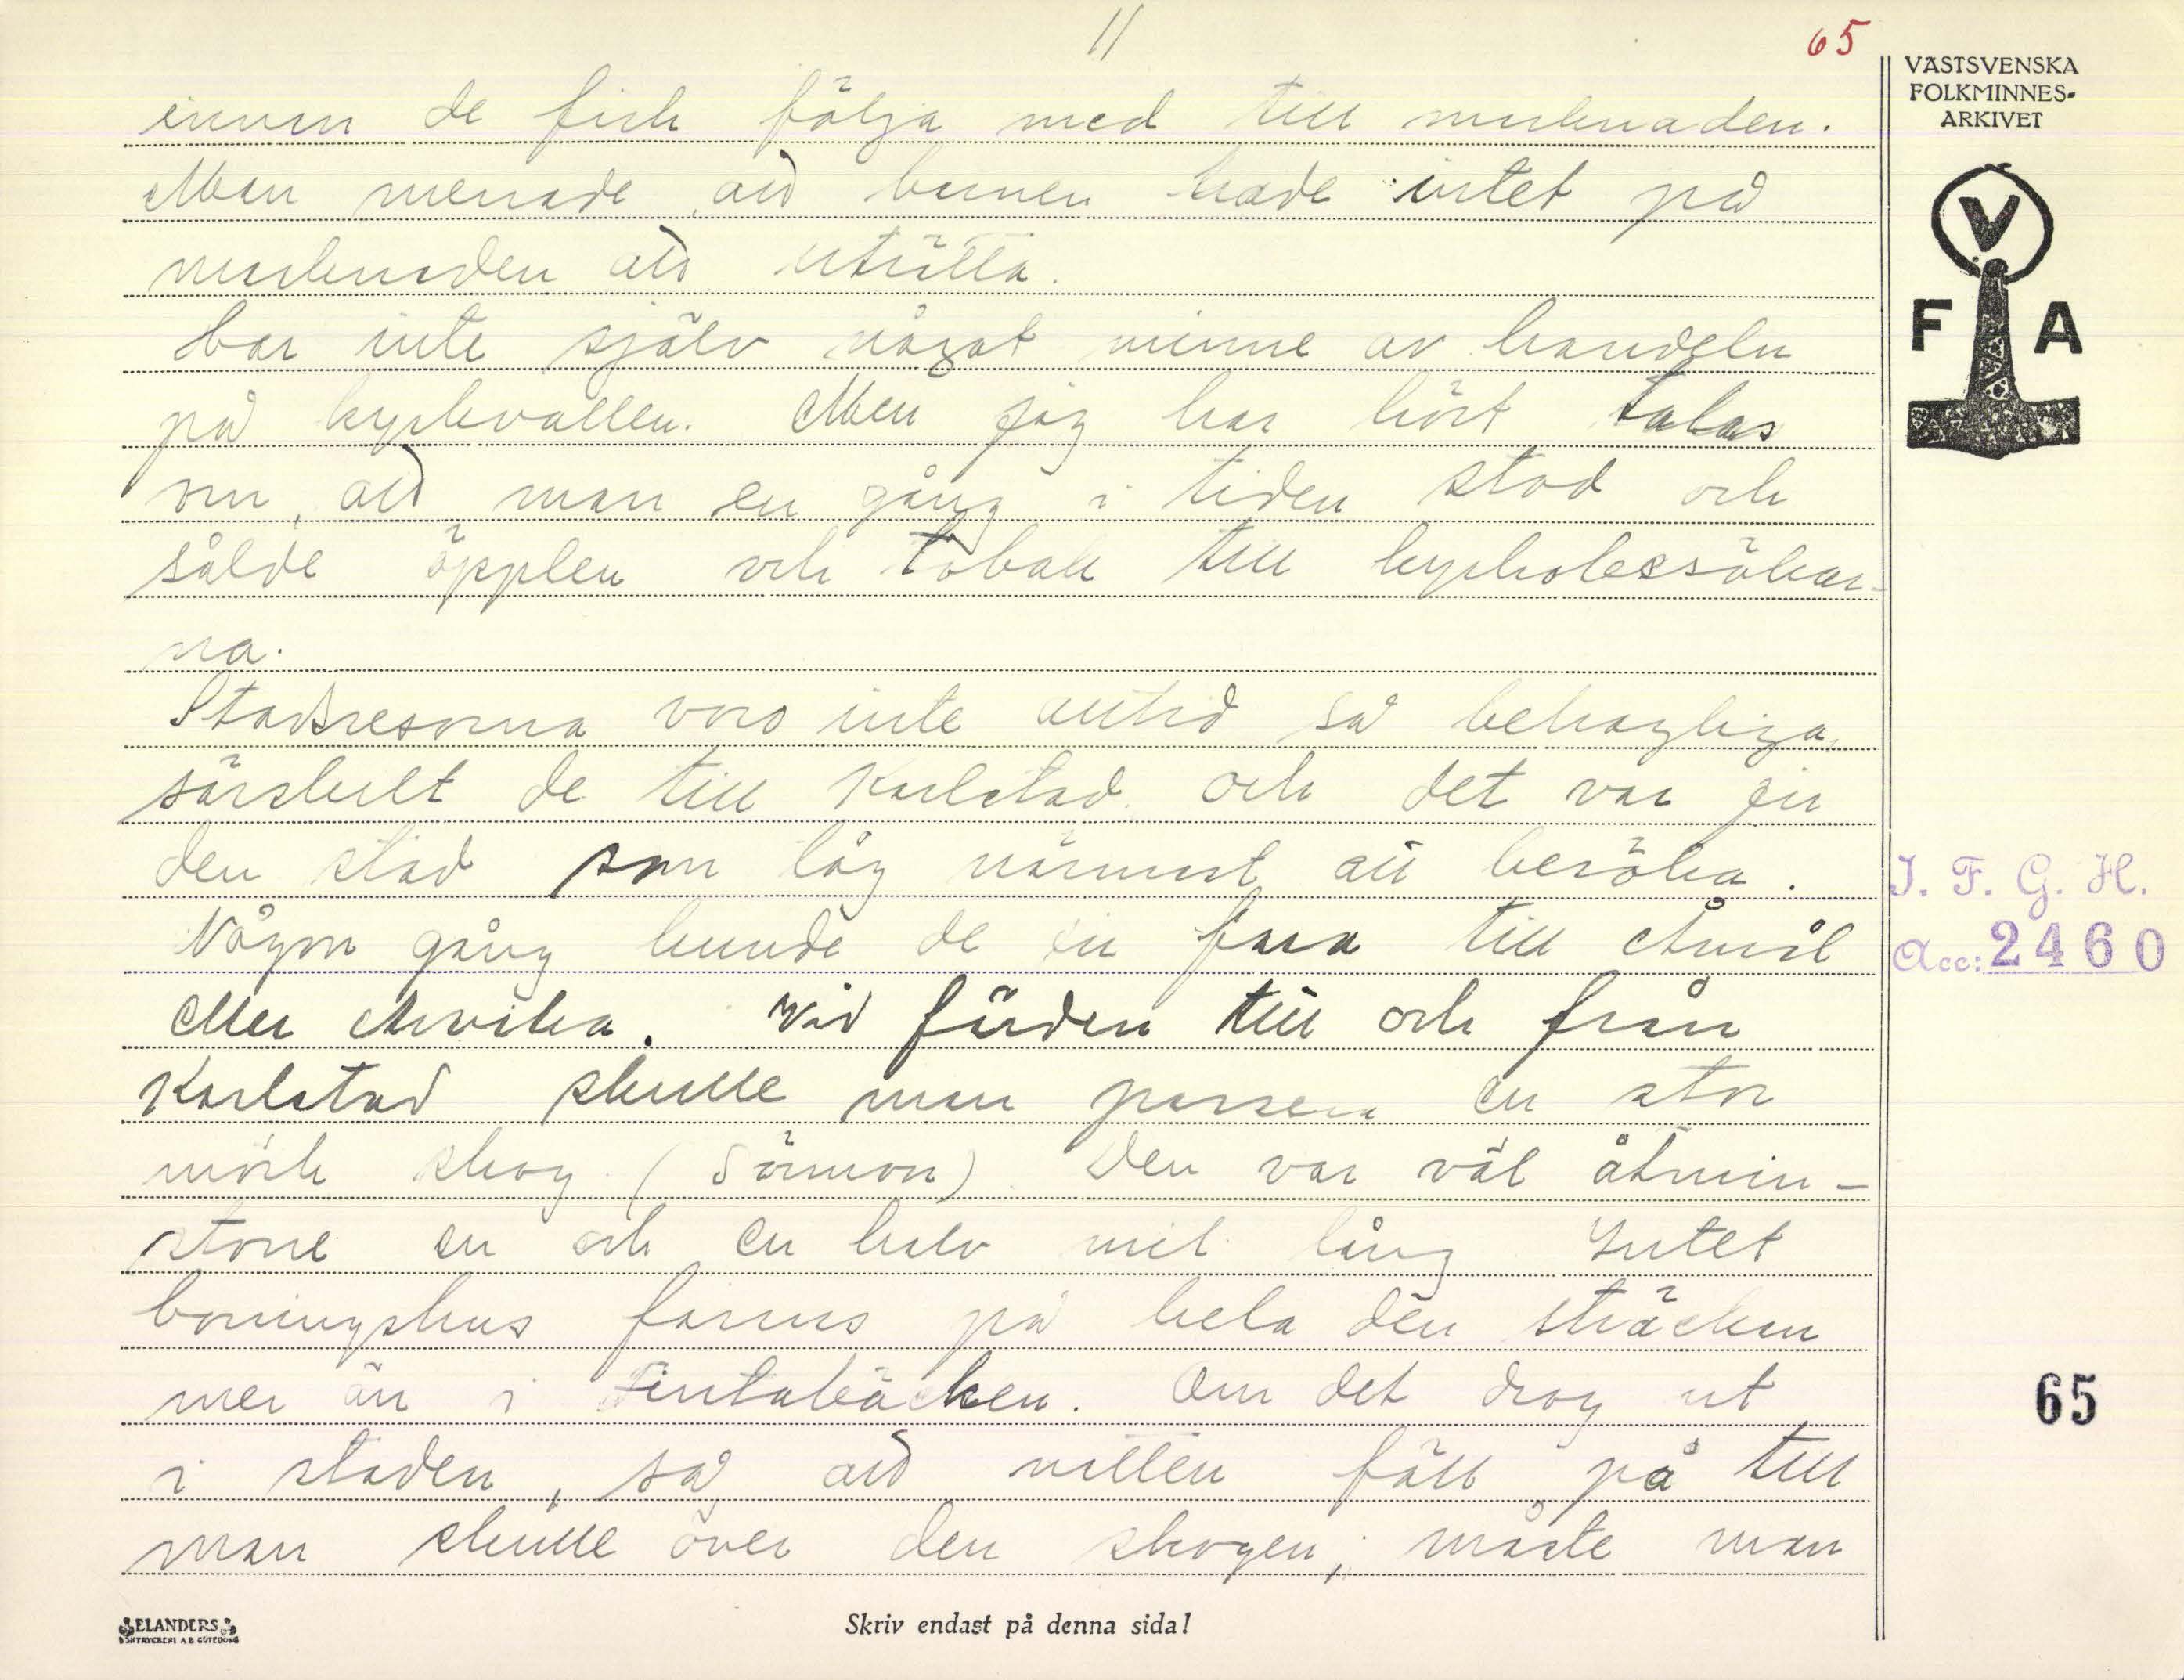 11
65
innan de fick följa med till marknaden.
Man menade att barnen hade intet på
marknaden att uträtta.
Har inte själv något minne av handeln
på kyrkvallen. Men jag har hört talas
om, att man en gång i tiden stod och
sålde äpplen och tobak till kyrkobesökar-
na.
Stadsresorna voro inte alltid så behagliga,
särskilt de till Karlstad och det var ju
den stad som låg närmast att besöka.
Någon gång kunde de ju fara till Åmål
eller Arvika. Vid färden till och från
Karlstad skulle man passera en stor
mörk skog (Sörmon). Den var väl åtmin-
stone en och en halv mil lång Intet
boningshus fanns på hela den sträckan
mer än i Fintabäcken. Om det drog ut
i staden, så att natten föll på till
man skulle över den skogen, måste man
VÄSTSVENSKA
FOLKMINNES-
ARKIVET
V
F A
I. F. G. H.
Acc: 2460
65
ELANDERS
BOKTRYCKERI A.B. GÖTEBORG
Skriv endast på denna sida!